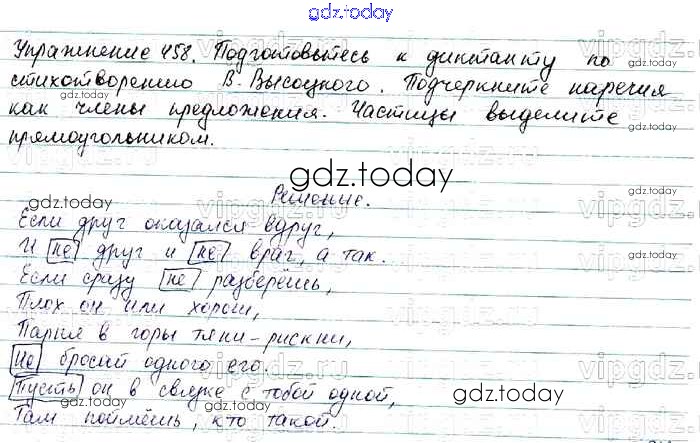 gdz.today
Упражнение 458. Подготовьтесь к диктанту по
стихотворению В. Высоцкого. Подчеркните наречия
как члены предложения. Частицы выделите
прямоугольником.
gdz.today
Решение.
Если друг оказался вдруг,
И не друг и не враг, а так.
Если сразу не разберёшь,
Плох он или хорош,
Парня в горы тяни-рискни,
Не бросай одного его.
Пусть он в связке с тобой одной,
Там поймёшь, кто такой.
gdz.today